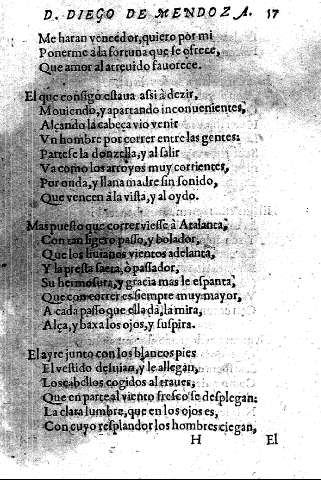 D. DIEGO DE MENDOZA. 17
Me haran vencedor, quiero por mi
Ponerme a la fortuna que se ofrece,
Que amor al atreuido fauorece.
El que consigo estaua assi à dezir,
Mouiendo, y apartando inconuenientes,
Alçando la cabeça vio venir
Vn hombre por correr entre las gentes:
Partese la donzella, y al salir
Va como los arroyos muy corrientes,
Por onda, y llana madre sin sonido,
Que vencen à la vista, y al oydo.
Mas puesto que correr viesse à Atalanta,
Con tan ligero passo, y bolador,
Que los liuianos vientos adelanta,
Y la presta saeta, ò passador,
Su hermosura, y gracia mas le espanta,
Que con correr es siempre muy mayor,
A cada passo que ella dà, la mira,
Alça, y baxa los ojos, y suspira.
El ayre junto con los blancos pies
El vestido desuian, y le allegan,
Los cabellos cogidos al traues,
Que en parte al viento fresco se desplegan:
La clara lumbre, que en los ojos es,
Con cuyo resplandor los hombres ciegan,
H El